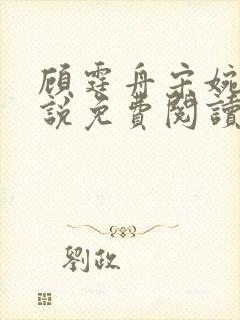 顧霆舟宋婉
說免費閱讀
劉政